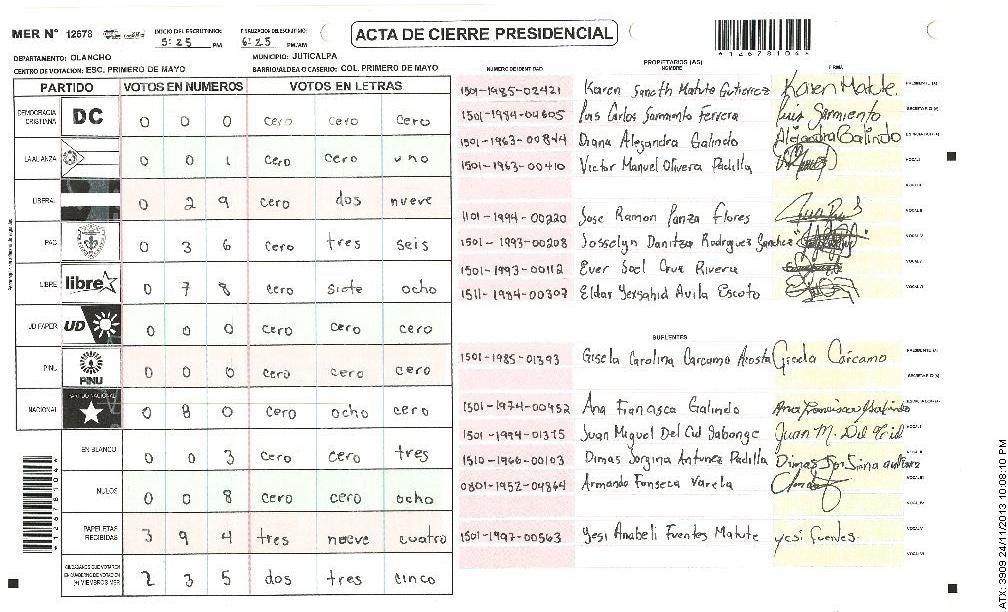 MER Nº 12678
INICIO DEL ESCRUTINIO: 5:25 PM
FINALIZACION DEL ESCRUTINIO: 6:25 PM/AM
ACTA DE CIERRE PRESIDENCIAL
DEPARTAMENTO: OLANCHO
MUNICIPIO: JUTICALPA
CENTRO DE VOTACION: ESC. PRIMERO DE MAYO
BARRIO/ALDEA O CASERIO: COL. PRIMERO DE MAYO
PARTIDO VOTOS EN NUMEROS VOTOS EN LETRAS
DEMOCRACIA CRISTIANA DC 0 0 0 cero cero cero
LA ALIANZA 0 0 1 cero cero uno
LIBERAL 0 2 9 cero dos nueve
PAC 0 3 6 cero tres seis
LIBRE libre 0 7 8 cero siete ocho
UD FAPER UD 0 0 0 cero cero cero
PINU PINU 0 0 0 cero cero cero
NACIONAL PARTIDO NACIONAL 0 8 0 cero ocho cero
EN BLANCO 0 0 3 cero cero tres
NULOS 0 0 8 cero cero ocho
PAPELETAS RECIBIDAS 3 9 4 tres nueve cuatro
CIUDADANOS QUE VOTARON EN CUADERNO DE VOTACION (+) MIEMBROS MER 2 3 5 dos tres cinco
PROPIETARIOS (AS)
NUMERO DE IDENTIDAD NOMBRE FIRMA
1501-1985-02421 Karen Saneth Matute Gutierrez Karen Matute. PRESIDENTE (A)
1501-1984-04605 Luis Carlos Sarmiento Ferrera Luis Sarmiento SECRETARIO (A)
1501-1963-00844 Diana Alejandra Galindo Alejandra Galindo ESCRUTADOR (A)
1501-1963-00410 Victor Manuel Olivera Padilla VOCAL I
VOCAL II
1101-1994-00220 Jose Ramon Panza Flores VOCAL III
1501-1993-00208 Josselyn Danitza Rodriguez Sanchez VOCAL IV
1501-1993-00112 Ever Soel Cruz Rivera VOCAL V
1511-1984-00307 Eldar Yersahid Avila Escoto VOCAL VI
SUPLENTES
1501-1985-01393 Gisela Carolina Carcamo Acosta Gisela Cárcamo PRESIDENTE (A)
SECRETARIO (A)
1501-1974-00952 Ana Francisca Galindo Ana Francisca Galindo ESCRUTADOR (A)
1501-1994-01375 Juan Miguel Del Cid Sabonge Juan M. Del Cid VOCAL I
1510-1966-00103 Dimas Jorgina Antunez Padilla VOCAL II
0801-1952-04864 Armando Fonseca Varela VOCAL III
VOCAL IV
1501-1997-00563 Yesi Anabeli Fuentes Matute yesi fuentes. VOCAL V
VOCAL VI
ATX: 3909 24/11/2013 10:08:10 PM